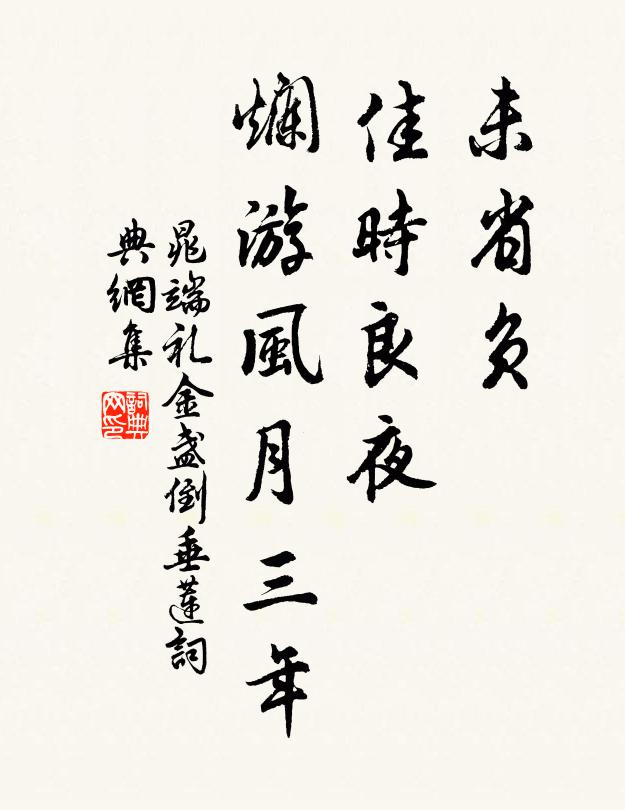 未省負
佳時良夜
爛游風月三年
晁端礼金盞倒垂蓮詞
典網集
詞典网印